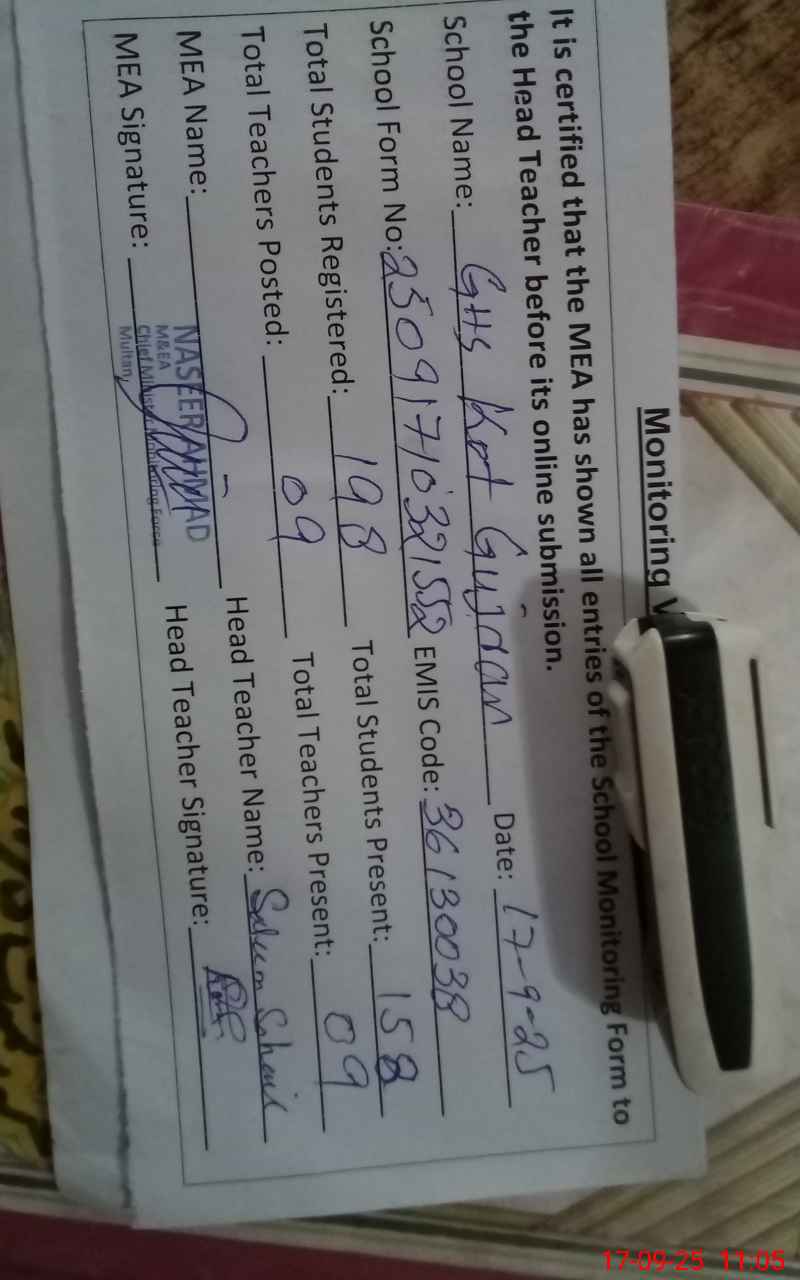 Monitoring
It is certified that the MEA has shown all entries of the School Monitoring Form to
the Head Teacher before its online submission.
School Name: GHS Kot Gujran Date: 17-9-25
School Form No: 25091710321552 EMIS Code: 36130038
Total Students Registered: 198 Total Students Present: 158
Total Teachers Posted: 09 Total Teachers Present: 09
MEA Name: NASEER AHMAD Head Teacher Name: Saleem
M&EA
MEA Signature: Chief Minister Monitoring Force Head Teacher Signature:
Multan,
17-09-25 11:05